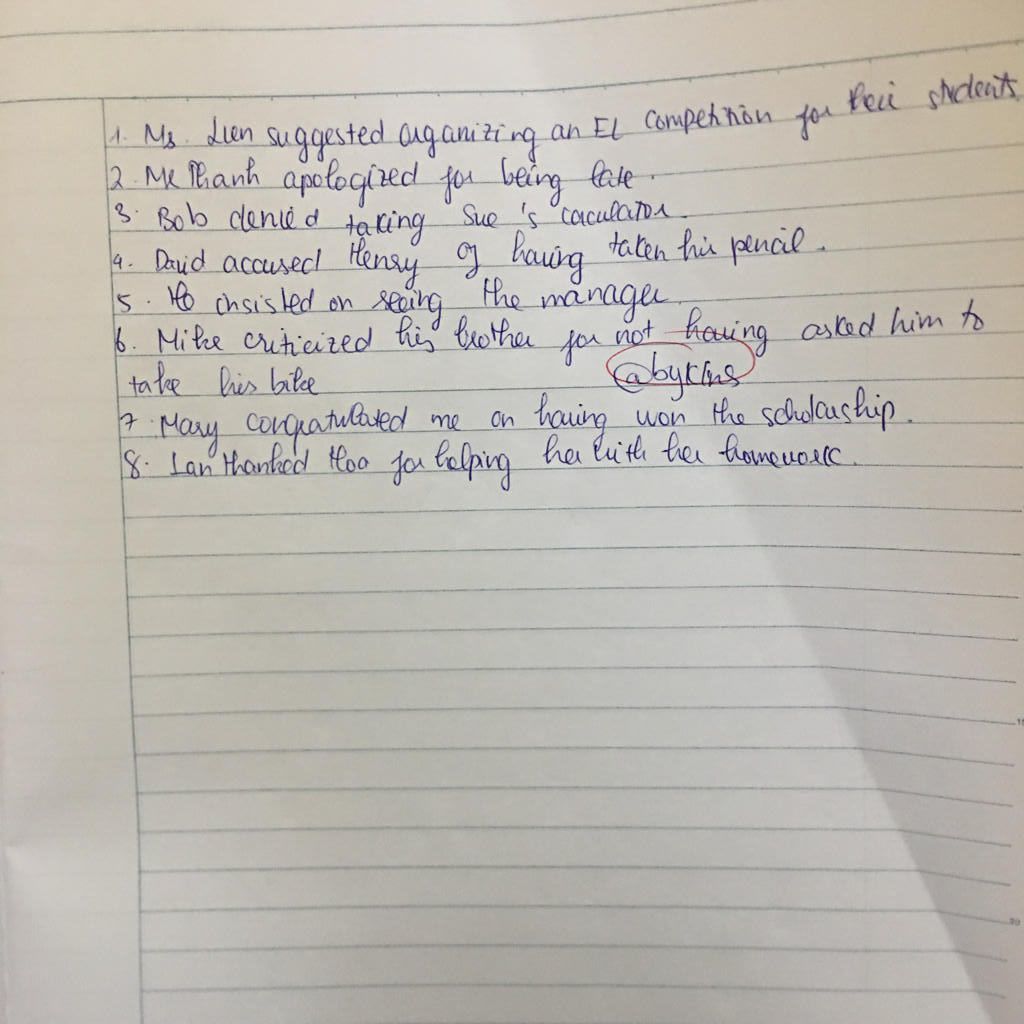 1. Ms. Lien suggested organizing an EL competition for their students
2. Mr Thanh apologized for being late.
3. Bob denied taking Sue's caculator.
4. David accused Henry of having taken his pencil.
5. Ho insisted on seeing the manager.
6. Mike criticized his brother for not having asked him to
take his bike @byKlns
7. Mary congratulated me on having won the scholarship.
8. Lan thanked Hoa for helping her with her homework.